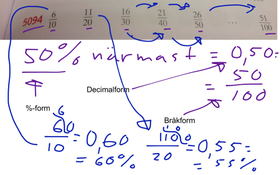 5094 6/10 11/20 16/30 21/40 26/50 ... 51/100
50% närmast = 0,50 =
= 50/100
Decimalform
%-form
Bråkform
6
60/10 = 0,60
= 60%
110/20 = 0,55 =
= 55%